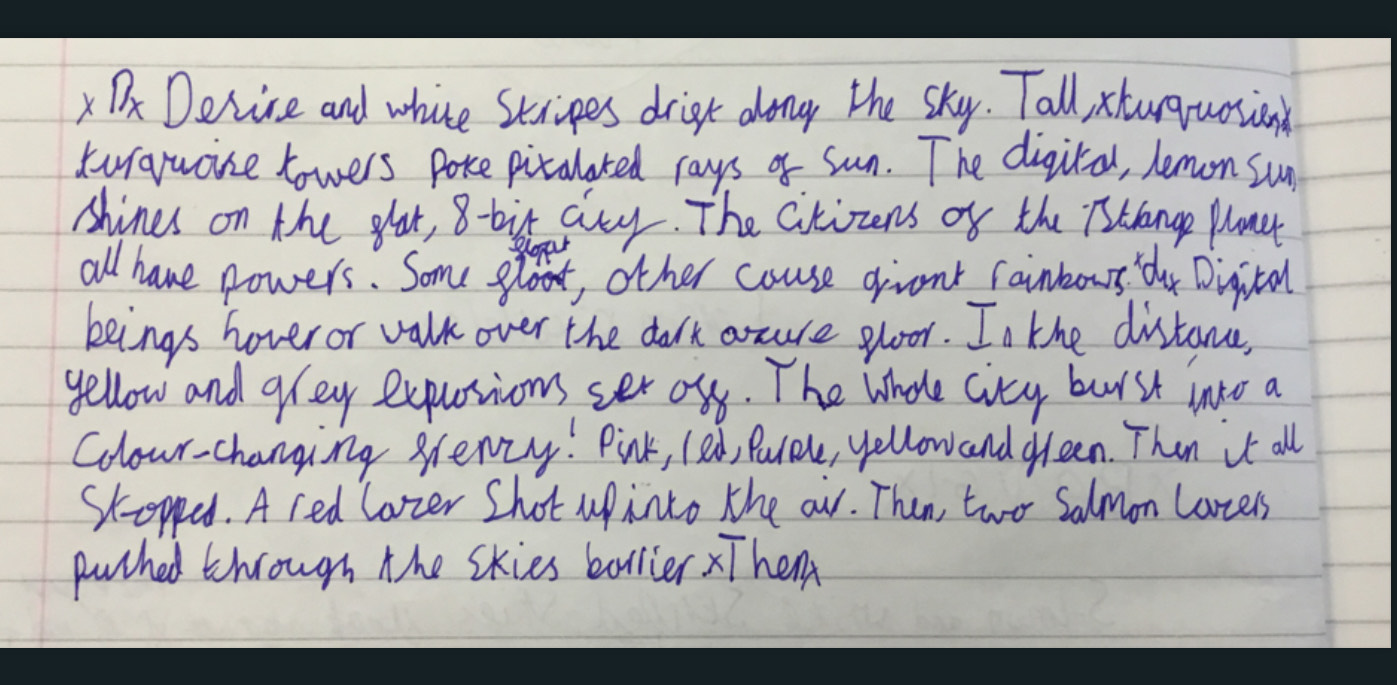 x Dx Desire and white Stripes drift along the sky. Tall, xturquosienx
turquoise towers poke pixalated rays of sun. The digital, lemon sun
shines on the flat, 8-bit city. The Citizens of the Strange planet
all have powers. Some float float, other cause giant rainbows. x dx Digital
beings hover or walk over the dark azure floor. In the distance,
yellow and grey explosions set off. The whole City burst into a
Colour-changing frenzy! Pink, red, Purple, yellow and green. Then it all
Stopped. A red lazer Shot up into the air. Then, two Salmon Lazers
pushed through the skies barrier. xThenx